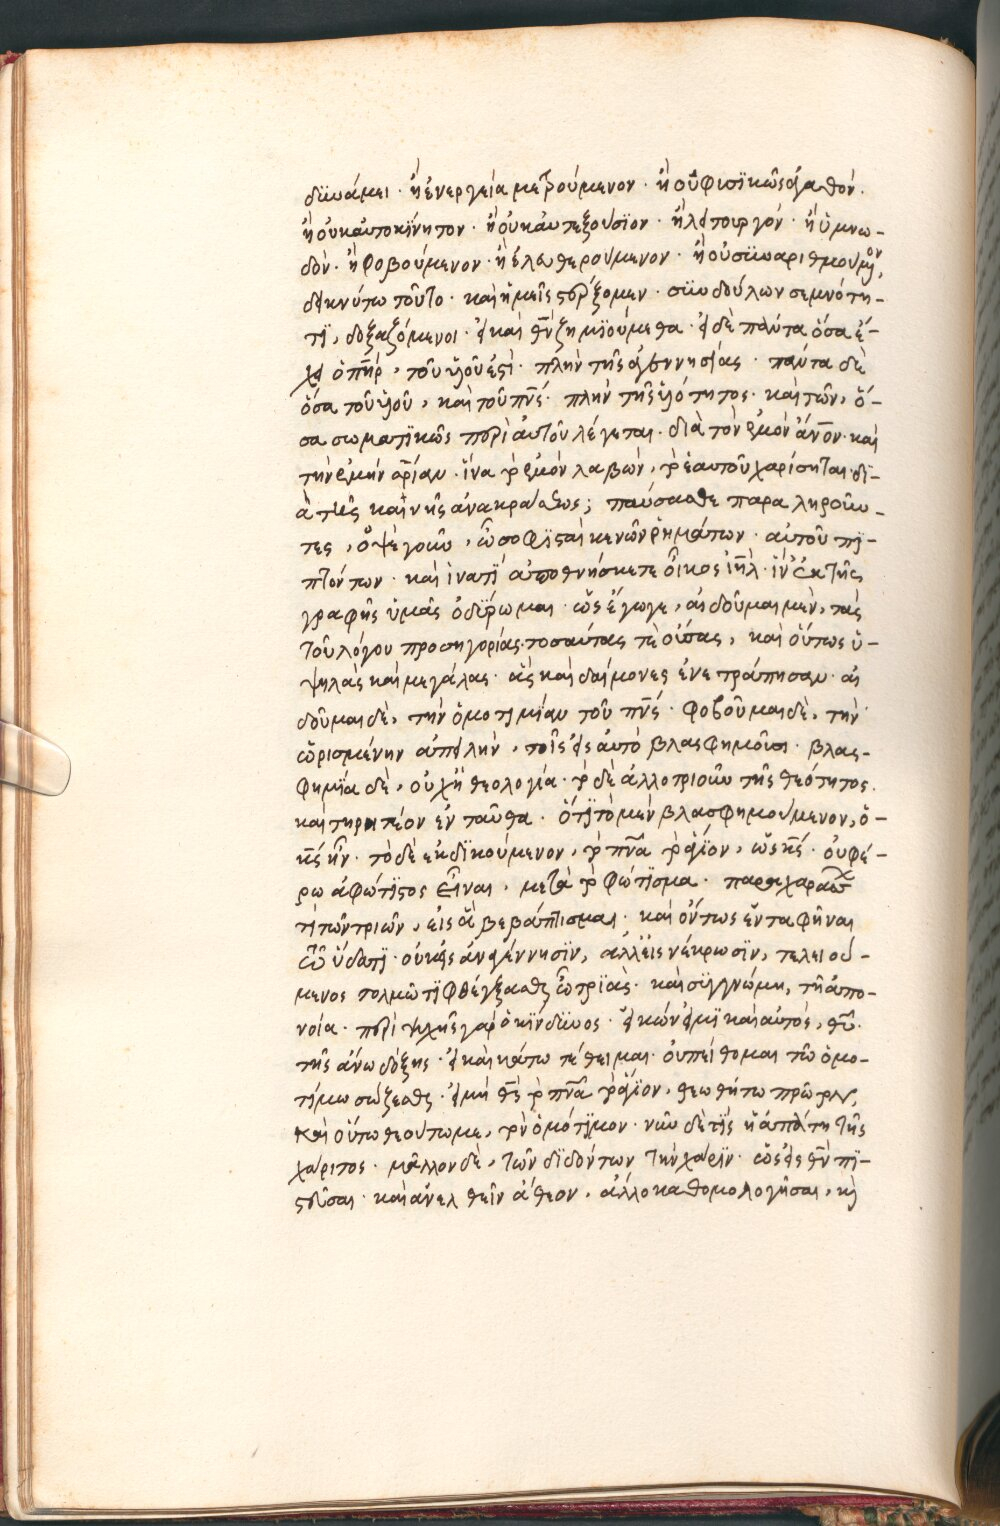 δϋνάμει · ἢ ἐνεργεία μετρούμενον · ἢ οὐ φυσϊκῶς ἀγαθὸν ·
ἢ οὐκ αὐτοκίνητον · ἢ οὐκ αὐτεξούσϊον · ἢ λειτουργόν · ἢ ὑμνω-
δὸν · ἢ φοβούμενον · ἢ ἐλευθερούμενον · ἢ οὐ σϋναριθμούμενον,
δεικνύτω τοῦτο · καὶ ἡμεῖς στέρξομεν · σϋνδούλων σεμνότη-
τϊ, δοξαζόμενοι · εἰ καὶ θν ζημϊούμεθα · εἰ δὲ πάντα ὅσα ἔ-
χει ὁ πηρ, τοῦ ὑοῦ ἐστὶ · πλὴν τῆς ἀγεννησίας · πάντα δὲ
ὅσα τοῦ ὑοῦ, καὶ τοῦ πνς · πλὴν τῆς ὑότητος · καὶ τῶν, ὅ-
σα σωματϊκῶς περὶ αὐτοῦ λέγεται · διὰ τὸν ἐμὸν ἄνον · καὶ
τὴν ἐμὴν σρίαν · ἵνα τὸ ἐμὸν λαβὼν, τὸ ἑαυτοῦ χαρίσηται δϊ-
ὰ τῆς καινῆς ἀνακράσεως ; παύσασθε παραληροῦν-
τες, ὀψὲ γοῦν, ὦ σοφϊσταὶ κενῶν ῥημάτων · αὐτοῦ πϊ-
πτόντων · καὶ ἱνατϊ ἀποθνήσκετε οἶκος ιηλ · ἵν' ἐκ τῆς
γραφῆς ὑμᾶς ὀδϋρωμαι · ὡς ἔγωγε, αἰδοῦμαι μὲν, τὰς
τοῦ λόγου προσηγορίας · τοσαύτας τὲ οὔσας, καὶ οὕτως ὑ-
ψηλὰς καὶ μεγάλας · ἃς καὶ δαίμονες ἐνετράπησαν · αἰ
δοῦμαι δὲ, τὴν ὁμοτιμίαν τοῦ πνς · φοβοῦμαι δὲ, τὴν
ὡρισμένην ἀπειλὴν, τοῖς εἰς αὐτὸ βλασφημοῦσι · βλασ-
φημία δὲ, οὐχ ἡ θεολογία · τὸ δὲ ἀλλοτριοῦν τῆς θεότητος ·
καὶ τηρητέον ἐνταῦθα · ὅτϊ τὸ μὲν βλασφημούμενον, ὁ
κς ἦν · τὸ δὲ ἐκδϊκούμενον, τὸ πνα τὸ ἅγϊον, ὡς κς · οὐ φέ-
ρω ἀφώτϊστος εἶναι, μετὰ τὸ φώτϊσμα · παραχαράσσων
τὶ τῶν τριῶν, εἰς ἃ βεβάπτισμαι · καὶ ὄντως ἐνταφῆναι
τῶ ὕδατϊ · οὐκ εἰς ἀναγέννησϊν, ἀλλ' εἰς νέκρωσϊν, τελειού-
μενος τολμῶ τϊ φθέγξασθαι ὦ τριὰς · καὶ σϋγγνώμη, τῆ ἀπο-
νοία · περὶ ψυχῆς γὰρ ὁ κίνδϋνος · εἰκών εἰμϊ καὶ αὐτός, θυ ·
τῆς ἄνω δόξης · εἰ καὶ κάτω τέθειμαι · οὐ πείθομαι τῶ ὁμο-
τίμω σώζεσθαι · εἰ μὴ θς τὸ πνα τὸ ἅγϊον, θεωθήτω πρῶτον,
καὶ οὕτω θεούτω με, τὸν ὁμότϊμον · νῦν δὲ τϊς ἡ ἀπάτη τῆς
χάριτος · μᾶλλον δὲ, τῶν δϊδόντων τὴν χάρϊν · ὡς εἰς θν πϊ-
στεῦσαι · καὶ ἀνελθεῖν ἄθεον, ἄλλο καθομολογῆσαι, κὶ